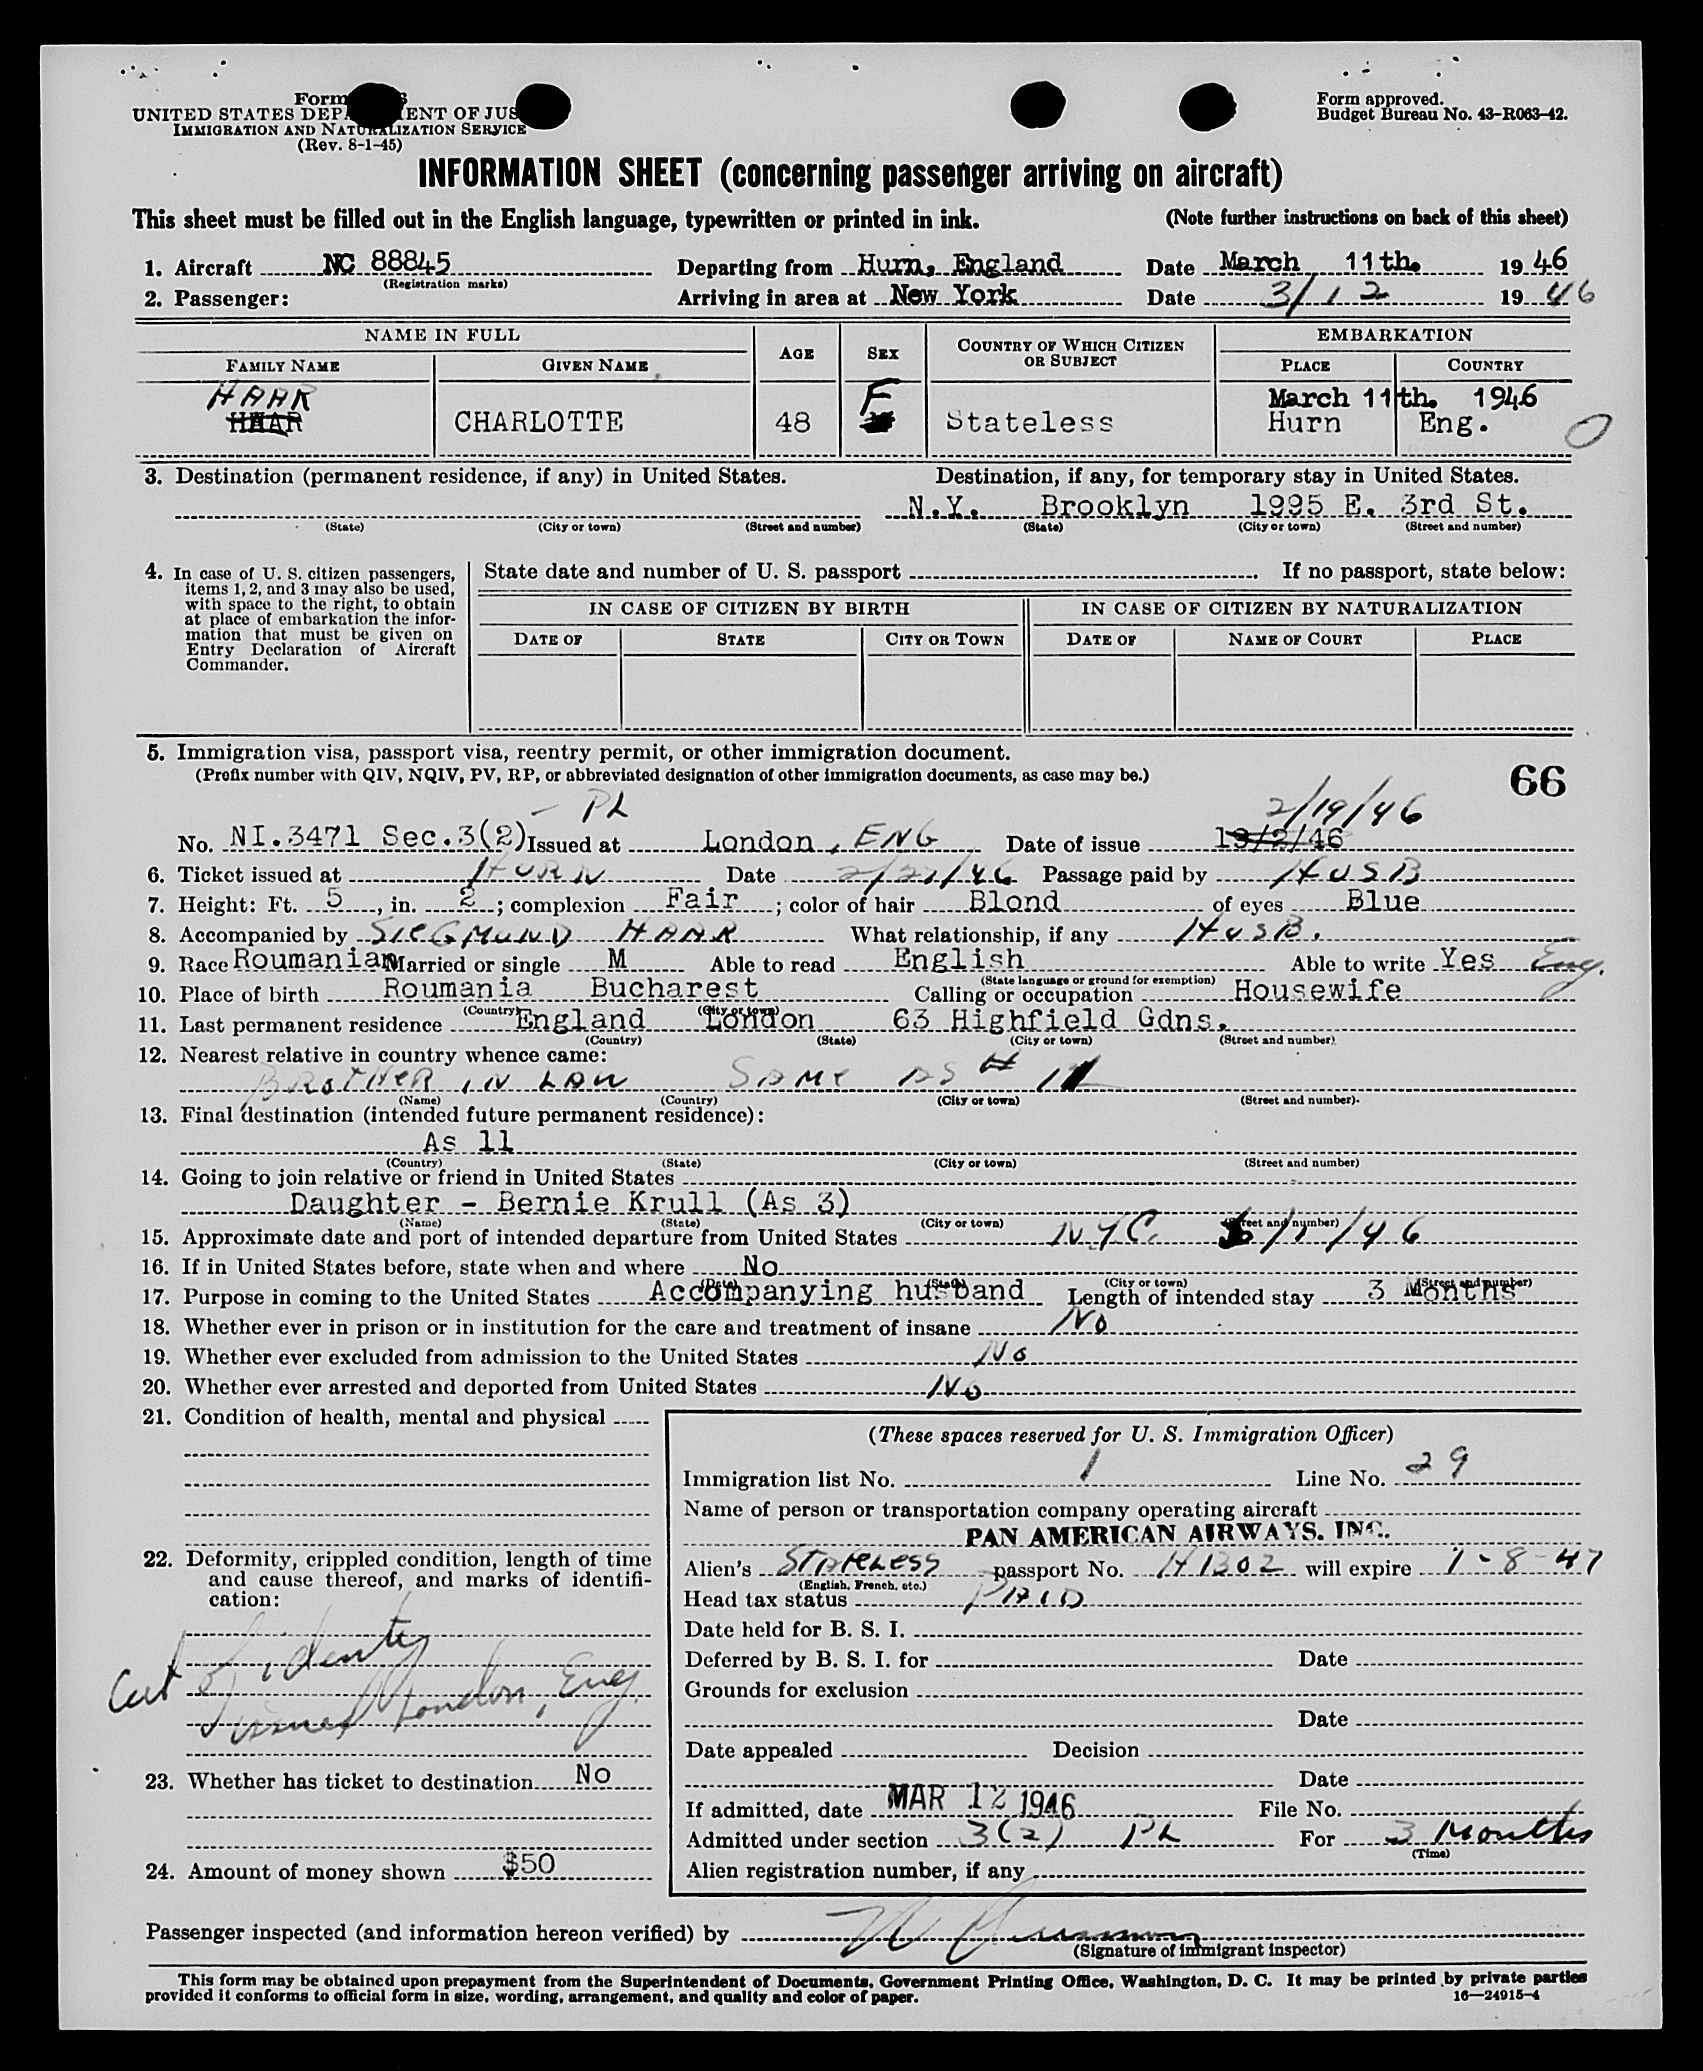 Form
UNITED STATES DEP ENT OF JUS
IMMIGRATION AND NATURALIZATION SERVICE
(Rev. 8-1-45)
Form approved.
Budget Bureau No. 43-R063-42.
INFORMATION SHEET (concerning passenger arriving on aircraft)
This sheet must be filled out in the English language, typewritten or printed in ink. (Note further instructions on back of this sheet)
1. Aircraft NC 88845 Departing from Hurn, England Date March 11th. 19 46
(Registration marks)
2. Passenger: Arriving in area at New York Date 3/12 19 46
NAME IN FULL AGE SEX COUNTRY OF WHICH CITIZEN OR SUBJECT EMBARKATION
FAMILY NAME GIVEN NAME PLACE COUNTRY
HAAR F March 11th. 1946
HAAR CHARLOTTE 48 Stateless Hurn Eng. O
3. Destination (permanent residence, if any) in United States. Destination, if any, for temporary stay in United States.
N.Y. Brooklyn 1995 E. 3rd St.
(State) (City or town) (Street and number) (State) (City or town) (Street and number)
4. In case of U. S. citizen passengers, items 1, 2, and 3 may also be used, with space to the right, to obtain at place of embarkation the information that must be given on Entry Declaration of Aircraft Commander.
State date and number of U. S. passport . If no passport, state below:
IN CASE OF CITIZEN BY BIRTH IN CASE OF CITIZEN BY NATURALIZATION
DATE OF STATE CITY OR TOWN DATE OF NAME OF COURT PLACE
5. Immigration visa, passport visa, reentry permit, or other immigration document.
(Prefix number with QIV, NQIV, PV, RP, or abbreviated designation of other immigration documents, as case may be.)
66
- PL 2/19/46
No. NI.3471 Sec.3(2) Issued at London, ENG Date of issue 19/2/46
6. Ticket issued at HURN Date 2/21/46 Passage paid by HUSB
7. Height: Ft. 5, in. 2; complexion Fair; color of hair Blond of eyes Blue
8. Accompanied by SIEGMUND HAAR What relationship, if any HUSB.
9. Race Roumanian Married or single M Able to read English Able to write Yes Eng.
(State language or ground for exemption)
10. Place of birth Roumania Bucharest Calling or occupation Housewife
(Country) (City or town)
11. Last permanent residence England London 63 Highfield Gdns.
(Country) (State) (City or town) (Street and number)
12. Nearest relative in country whence came:
BROTHER IN LAW SAME AS # 11
(Name) (Country) (City or town) (Street and number)
13. Final destination (intended future permanent residence):
As 11
(Country) (State) (City or town) (Street and number)
14. Going to join relative or friend in United States
Daughter - Bernie Krull (As 3)
(Name) (State) (City or town) (Street and number)
15. Approximate date and port of intended departure from United States NYC. 6/1/46
16. If in United States before, state when and where No
(Date) (State) (City or town) (Street and number)
17. Purpose in coming to the United States Accompanying husband Length of intended stay 3 Months
18. Whether ever in prison or in institution for the care and treatment of insane No
19. Whether ever excluded from admission to the United States No
20. Whether ever arrested and deported from United States No
21. Condition of health, mental and physical
22. Deformity, crippled condition, length of time and cause thereof, and marks of identification:
Cert of identity
issued London, Eng.
23. Whether has ticket to destination No
24. Amount of money shown $50
(These spaces reserved for U. S. Immigration Officer)
Immigration list No. 1 Line No. 29
Name of person or transportation company operating aircraft
PAN AMERICAN AIRWAYS. INC.
Alien's Stateless passport No. H1302 will expire 1-8-47
(English, French, etc.)
Head tax status PAID
Date held for B. S. I.
Deferred by B. S. I. for Date
Grounds for exclusion
Date
Date appealed Decision
Date
If admitted, date MAR 12 1946 File No.
Admitted under section 3(2) PL For 3 Months
(Time)
Alien registration number, if any
Passenger inspected (and information hereon verified) by
(Signature of immigrant inspector)
This form may be obtained upon prepayment from the Superintendent of Documents, Government Printing Office, Washington, D. C. It may be printed by private parties
provided it conforms to official form in size, wording, arrangement, and quality and color of paper. 16—24915-4